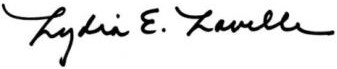 Lydia E. Lavelle